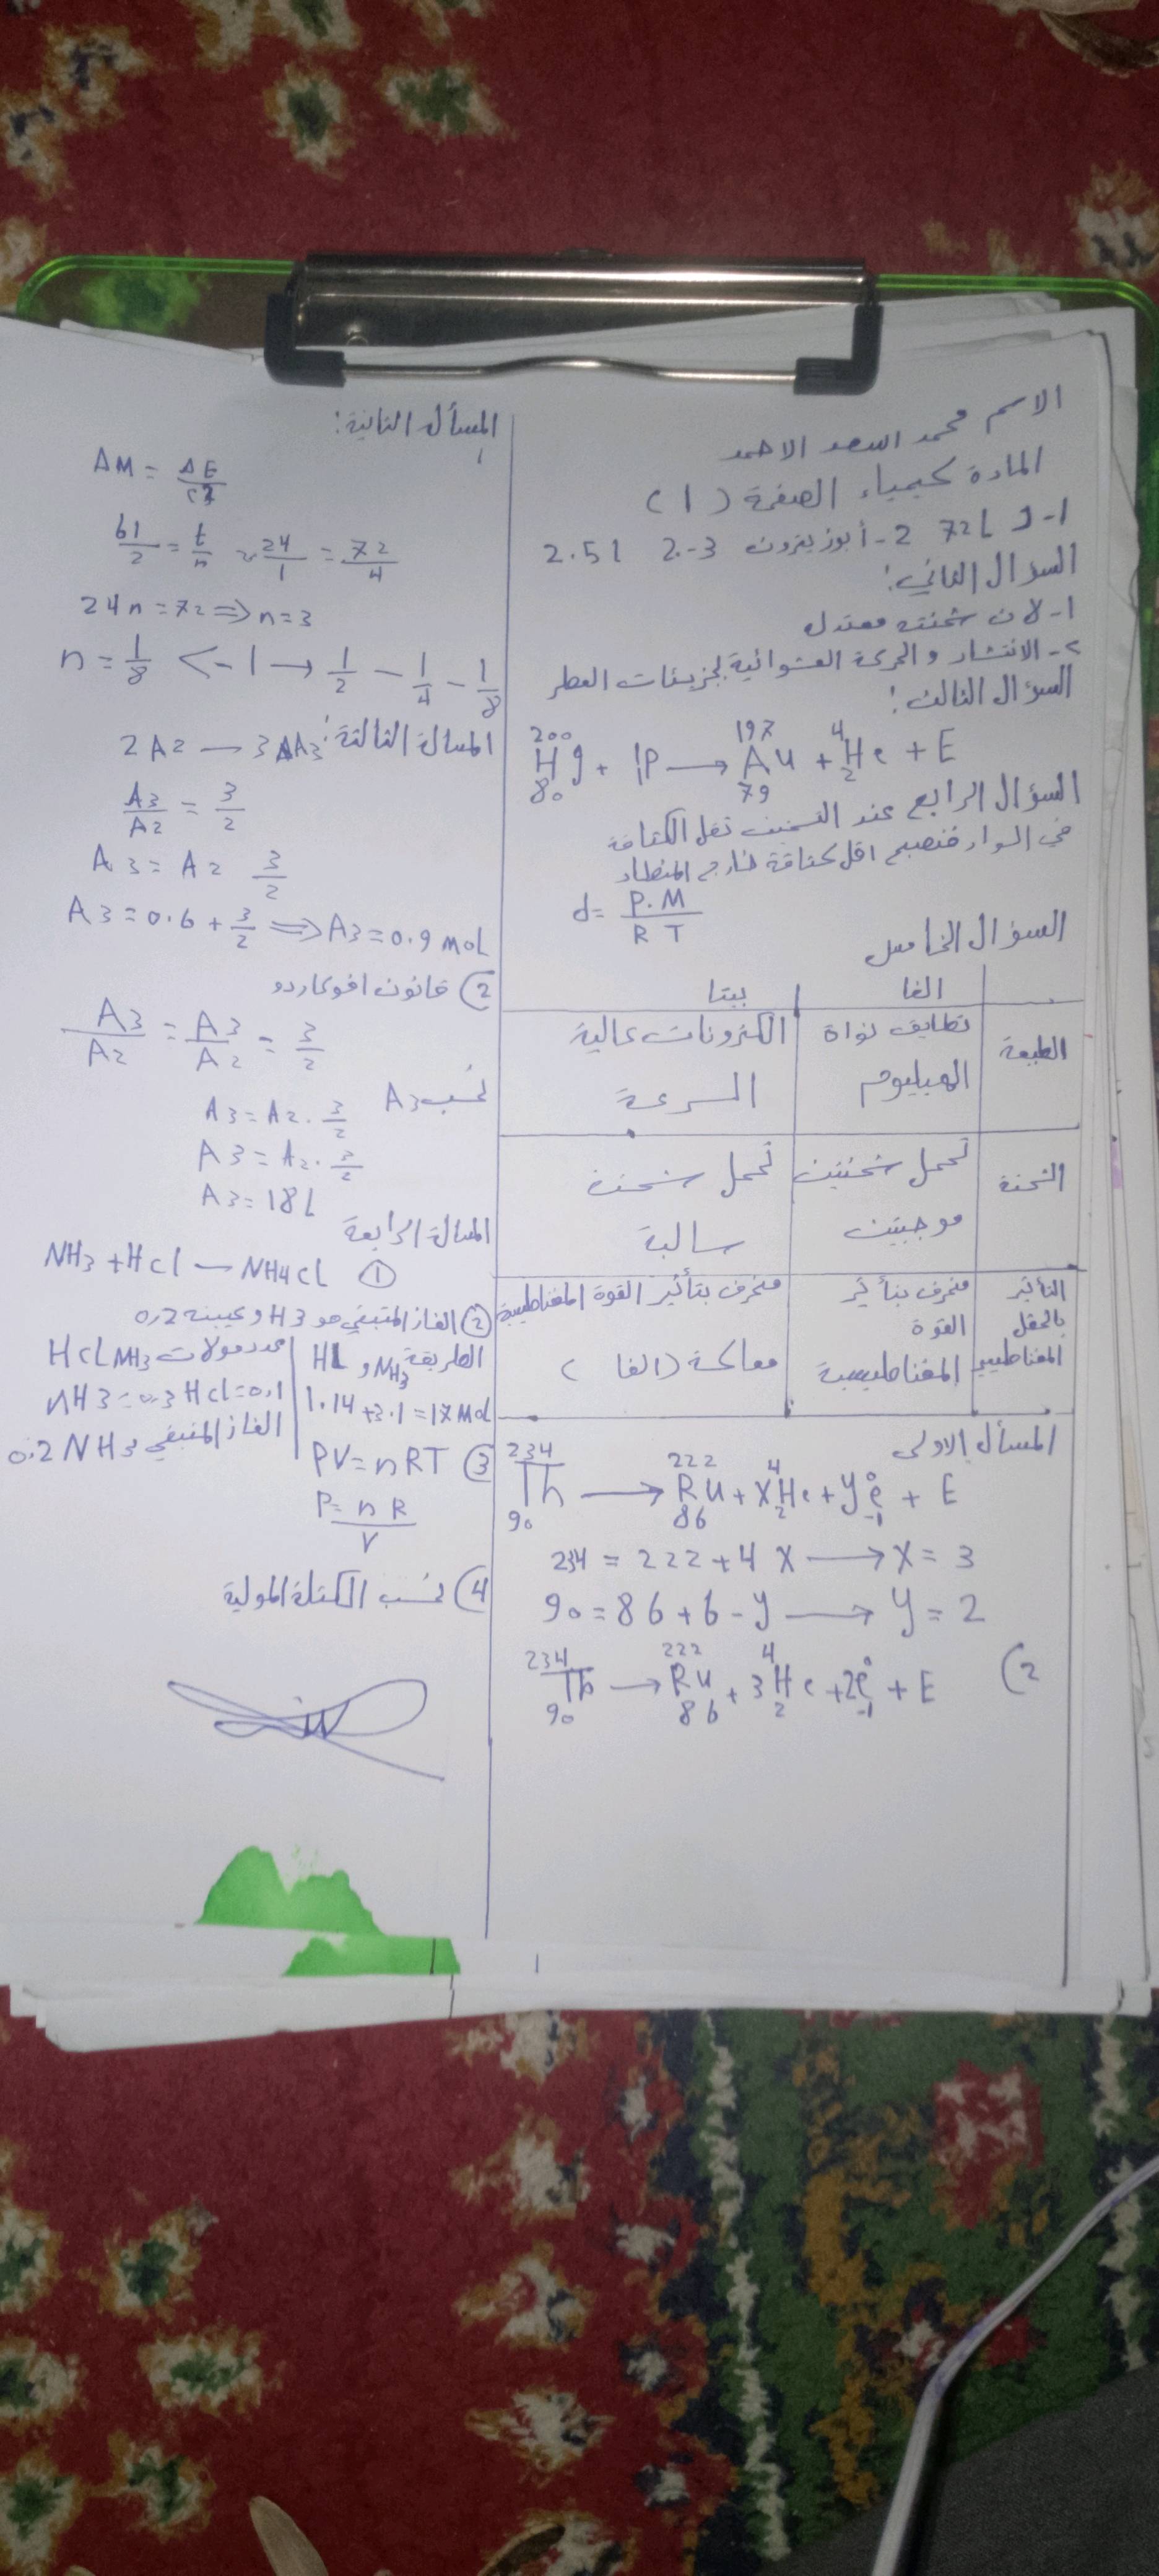 الاسم محمد اسعد الاحمد
المادة كيمياء الصفحة (1)
1-د 72L 2-أبوزيترون 3-2 2.51
السؤال الثاني:
1-لان شحنته معتدل
2-الانتشار والحركة العشوائية لجزيئات العطر
السؤال الثالث:
²⁰⁰₈₀Hg + ¹₁P → ¹⁹⁷₇₉Au + ⁴₂He + E
السؤال الرابع عند التسخين تقل الكثافة
في الهواء فتصبح اقل كثافة خارج المنطاد
d = P.M / R T
السؤال الخامس
الفا بيتا
الطبيعة تطابق نواة الهيليوم الكترونات عالية السرعة
الشحنة تحمل شحنتين موجبتين تحمل شحنة سالبة
التأثير بالحقل المغناطيسي منحرف بتأثير القوة المغناطيسية منحرف بتأثير القوة المغناطيسية معاكسة (الفا)
المسأل الاولى
²³⁴₉₀Th → ²²²₈₆Ru + X⁴₂He + y⁰₋₁e + E
234 = 222 + 4 X → X = 3
90 = 86 + 6 - y → y = 2
2) ²³⁴₉₀Th → ²²²₈₆Ru + 3⁴₂He + 2⁰₋₁e + E
المسأل الثانية:
ΔM = ΔE / C2
24 / 1 = 72 / 4
24n = 72 ⇒ n = 3
n = 1/8 <- 1 → 1/2 - 1/4 - 1/8
المسالة الثالثة: 2A2 — 3A3
A3 / A2 = 3 / 2
A3 = A2 3/2
A3 = 0.6 + 3/2 ⇒ A3 = 0.9 mol
2) قانون افوكاردو
A3 / A2 = A3 / A2 = 3 / 2
نحسب A3
A3 = A2 . 3/2
A3 = A2 . 3/2
A3 = 18L
المسالة الرابعة
① NH3 + HCl — NH4Cl
② الغاز المتبقي هو H3 و 0,2
الطريقة NH3 و HL
1.14 + 3.1 = 17 Mol
عدد مولات HCL NH3
nH3 = 0.3 HCl = 0,1
الغاز المتبقي 0.2 NH3
③ PV = nRT
P = n R / V
④ نحسب الكتلة المولية